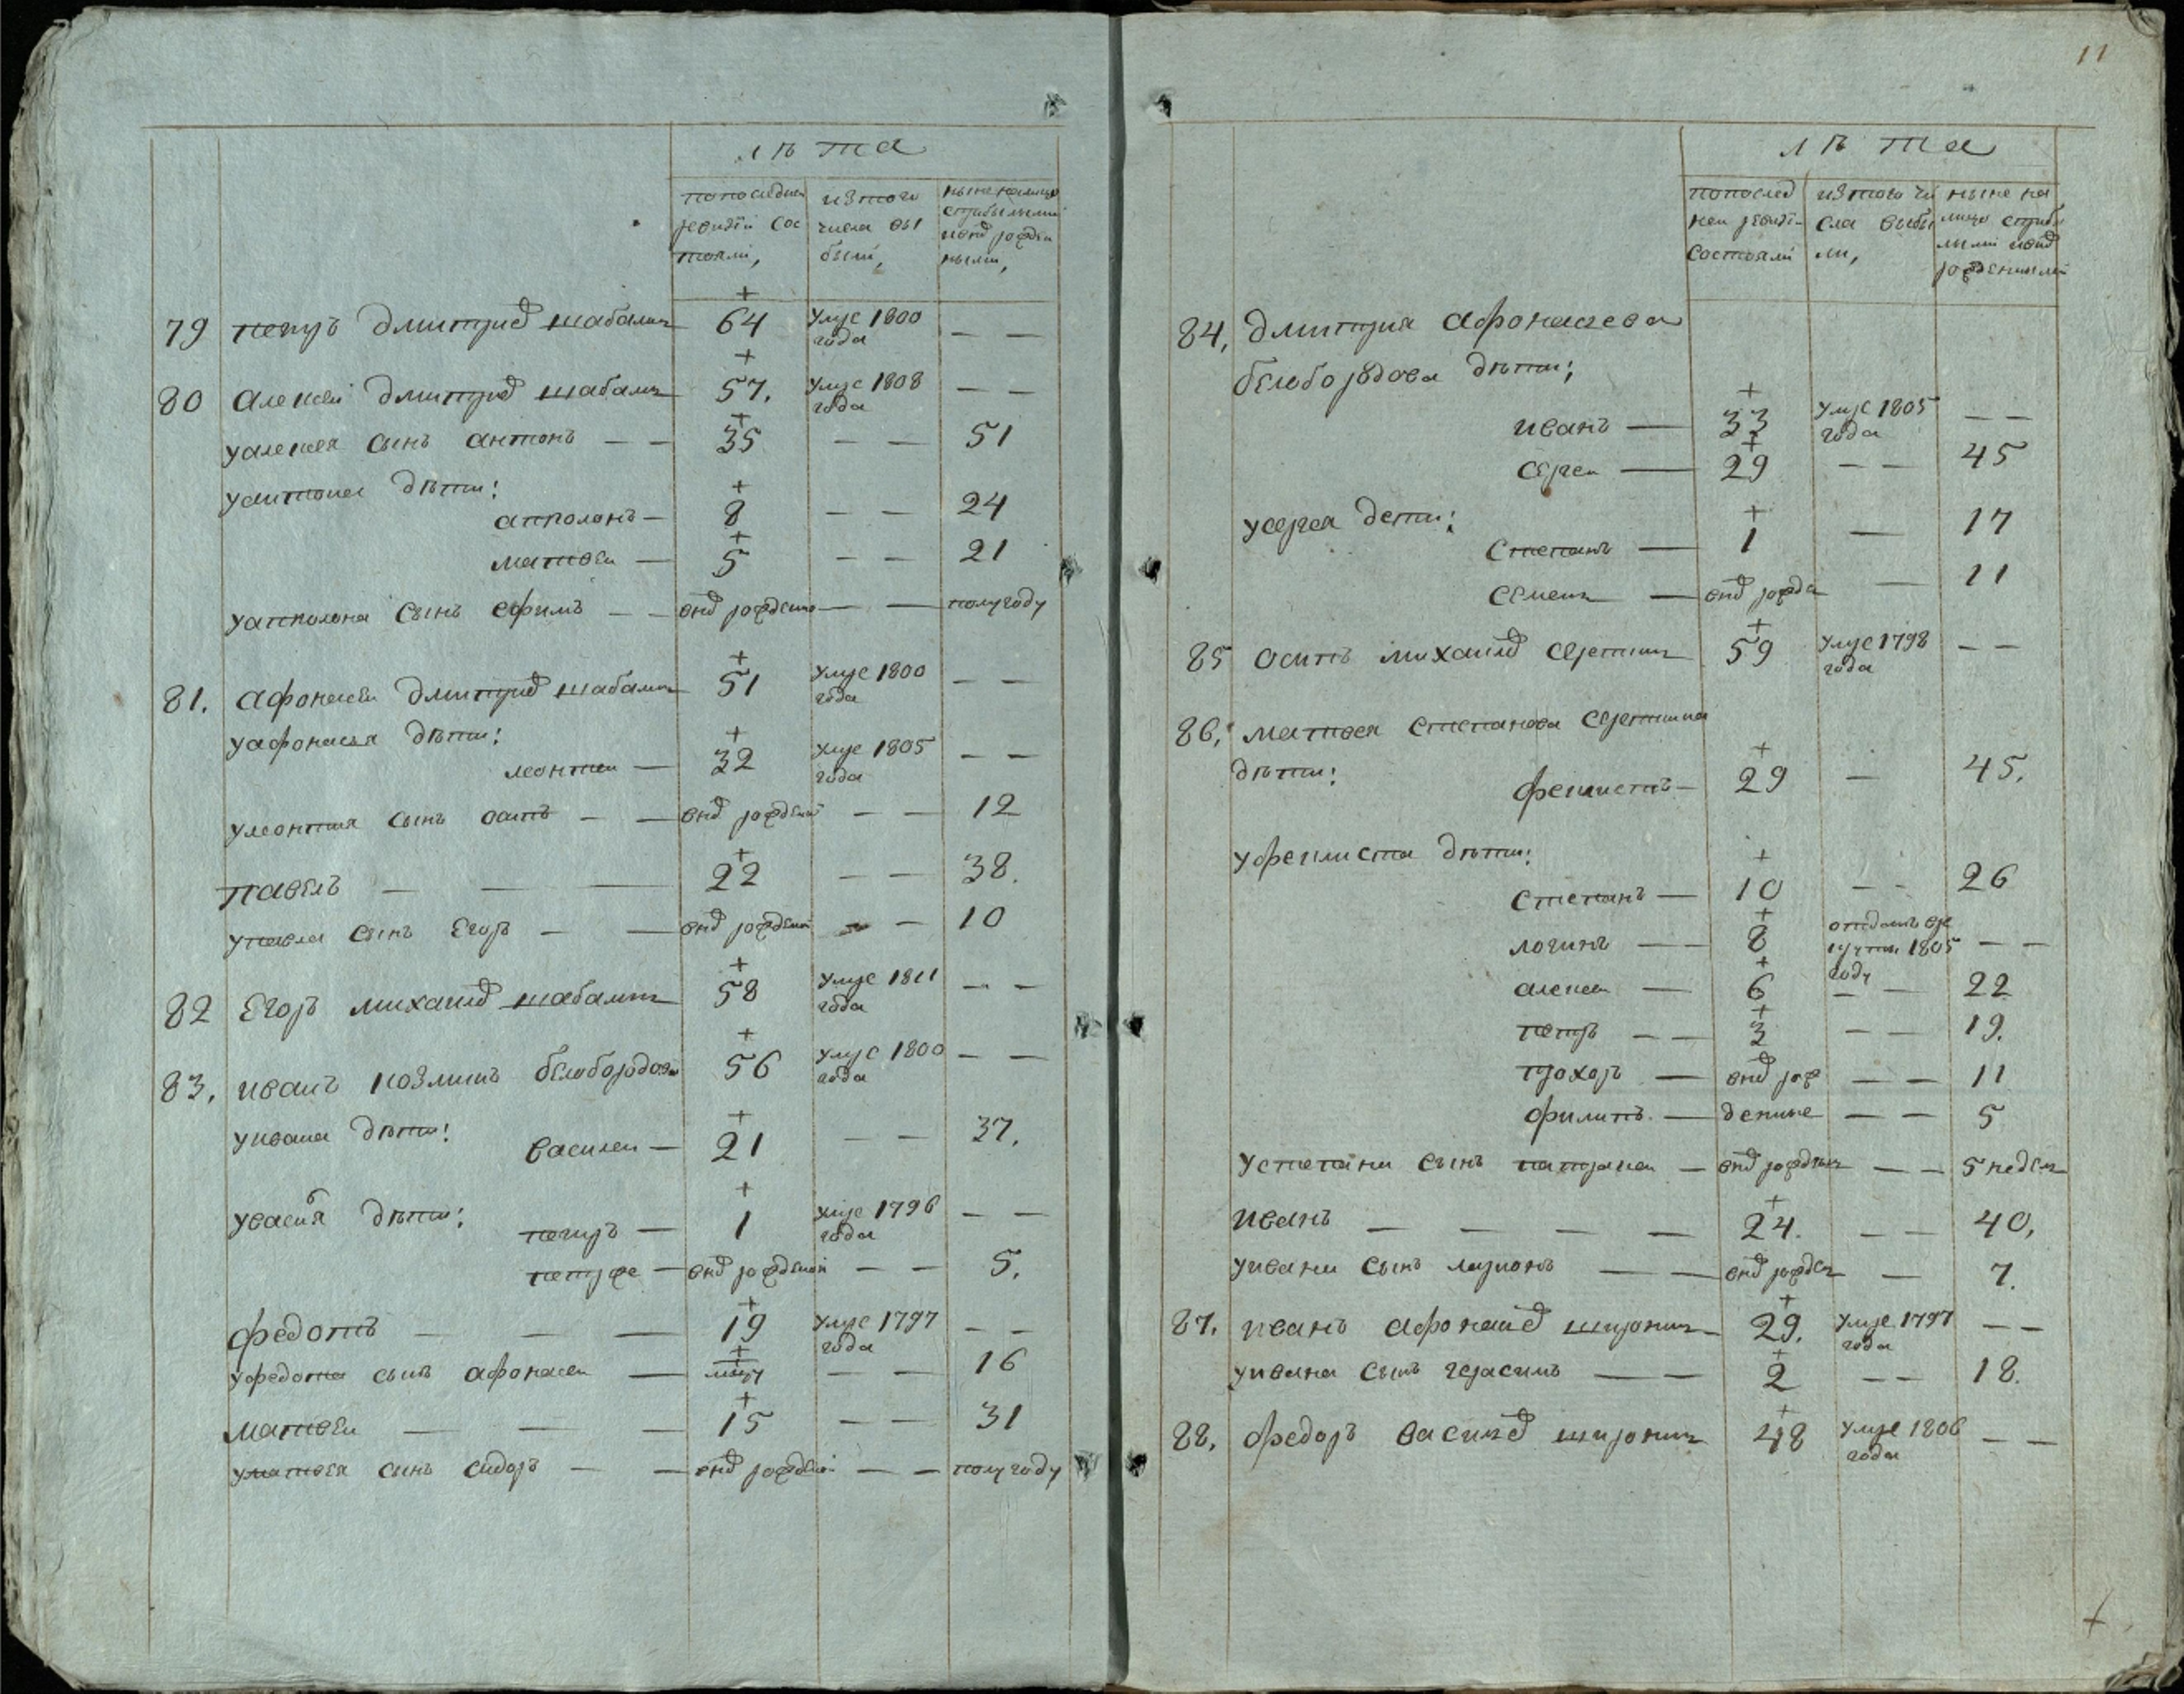 лѣта
попоследней изтого ныне налицо
ревизїи сос числа вы сприбылыми
тояли, были, ивнд рожден
ными,
79 петръ дмитриев шабалин 64 умре 1800 года — —
80 алексеи дмитриев шабалин 57. умре 1808 года — —
уалексея сынъ антонъ — — 35 — — 51
уантона дѣти:
апполонъ — 8 — — 24
матвеи — 5 — — 21
уапполона сынъ ефимъ — — внд рождено — — полугоду
81. афонасеи дмитриев шабалин 51 умре 1800 года — —
уафонасья дѣти:
леонтеи — 32 умре 1805 года — —
улеонтия сынъ осипъ — — внд рожденой — — 12
павелъ — — — 22 — — 38.
упавла сынъ Егоръ — — внд рожденой — — 10
82 Егоръ михаилов шабалин 58 умре 1811 года — —
83. иванъ козминъ белобородовъ 56 умре 1800 года — —
уивана дѣти:
василеи — 21 — — 37.
увасиля дѣти:
петръ — 1 умре 1796 года — —
петрже — внд рожденой — — 5.
федотъ — — — 19 умре 1797 года — —
уфедота сынъ афонасеи — — — 16
матвеи — — — 15 — — 31
уматвея сынъ сидоръ — — внд рожденой — — полугоду
11
лѣта
попослед изтого чи ныне на
неи ревизї- сла выбы лицо сприбы
состояли ли, лыми ивнд
рожденными
84, дмитрия афонасьева
белобородова дѣти;
иванъ — 33 умре 1805 года — —
сергеи — 29 — — 45
усергея дети:
степанъ — 1 — 17
семенъ — внд рожде — 11
85 осипъ михаилов серетнин 59 умре 1798 года — —
86, матвея степанова серетнина
дѣти:
феклистъ — 29 — 45.
уфеклиста дѣти:
степанъ — 10 — - 26
логинъ — — 8 отданъ врекруты 1805 году — —
алексеи — 6 — — 22
петръ — — 3 — — 19.
прохоръ — внд рож — — 11
филипъ. — денные — — 5
устепана сынъ патракеи — внд рожден — — 5 недель
иванъ — — — — 24. — — 40,
уивана сынъ ларионъ — — внд рожден — 7.
87. иванъ афонасиев широнин 29. умре 1797 года — —
уивана сынъ герасимъ — — 2 — — 18.
88. федоръ василев широнин 48 умре 1806 года — —